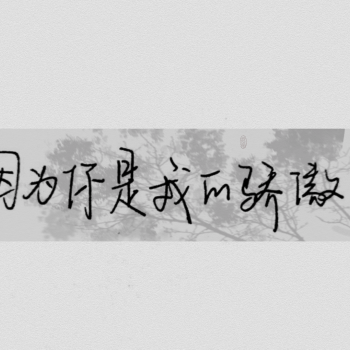 因为你是我的骄傲